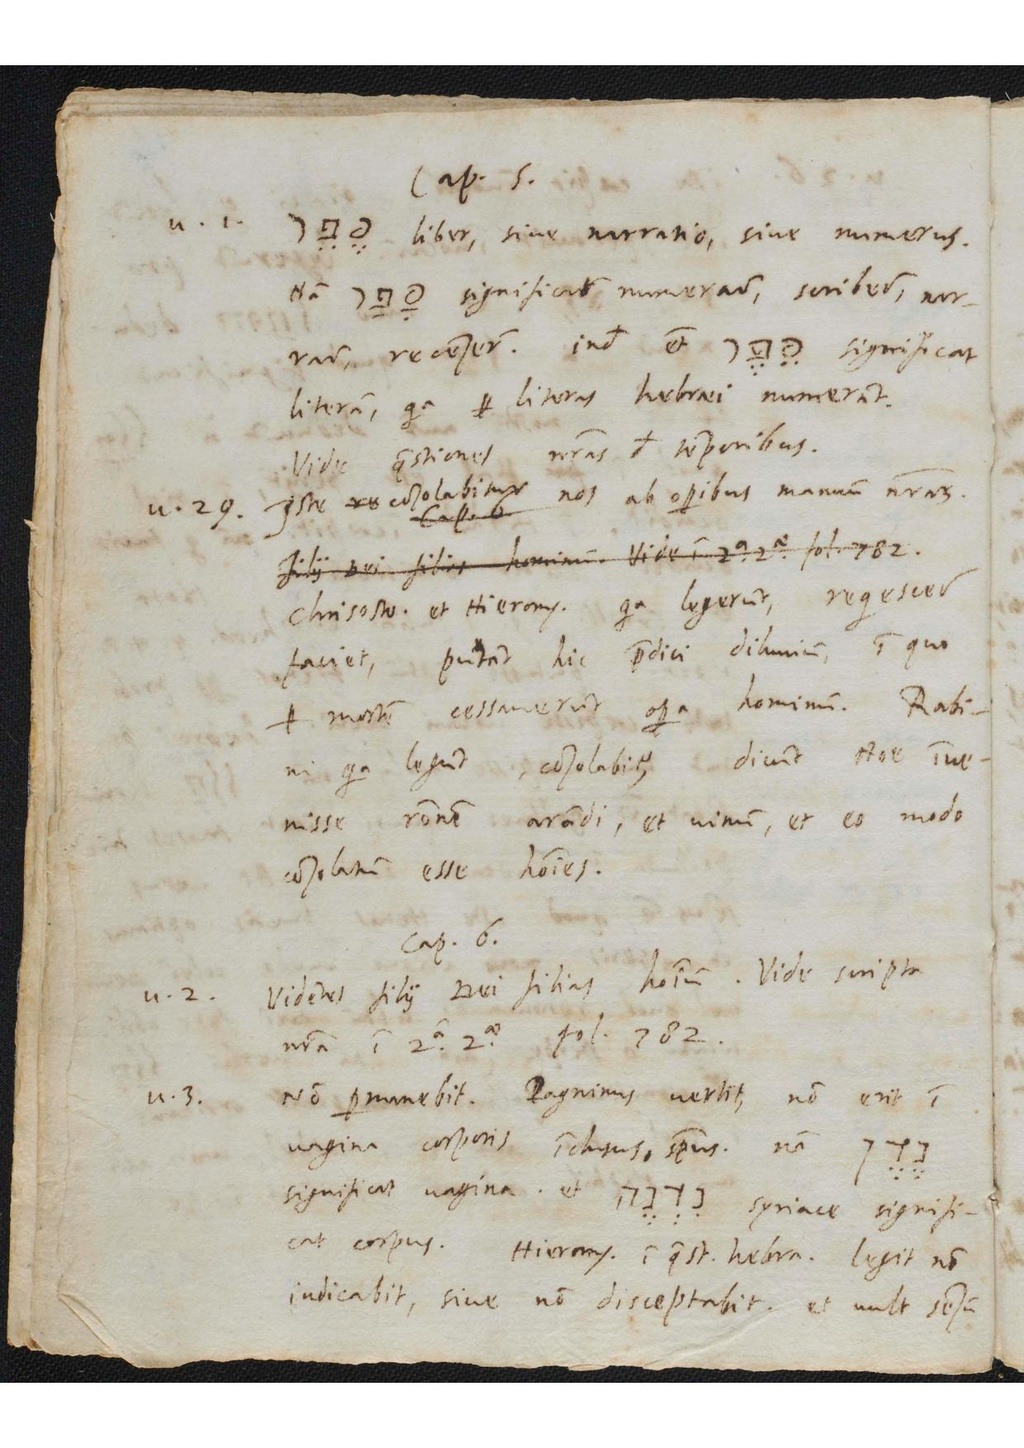 Cap. 5.
u. 1. סֵפֶר liber, siue narratio, siue numerus.
Nā סָפַר significat numerare, scribere, nar-
rare, recēsere. inde et סֵפֶר significat
literā, qa literas hebraei numerāt.
Vide q̄stiones nr̄as d tēporibus.
u. 29. Iste re cōsolabitur nos ab opibus manuū nr̄arū.
Cap. 6
filij Dei filias hominū. Vide ī 2ª. 2ę fol. 782.
Chrisosto. et Hierony. qa legerūt, reqiescere
faciet, putāt hic p̄dici diluuiū, ī quo
mortē cessauerūt opa hominū. Rabi-
ni qa legūt, cōsolabit, dicūt Noe īue-
nisse rōnē arādi, et uinū, et eo modo
cōsolatū esse hōies.
Cap. 6.
u. 2. Vidētes filij Dei filias hoīum. Vide scripta
nr̄a ī 2ª. 2ę fol. 782.
u. 3. Nō pmanebit. Pagninus uertit, nō erit ī
uagina corporis īclusus, sp̄us. nā נֶדֶן
significat uagina. et נִדְנֶה syriace signifi-
cat corpus. Hierony. ī q̄st. hebra. legit nō
iudicabit, siue nō disceptabit. et uult sēsū